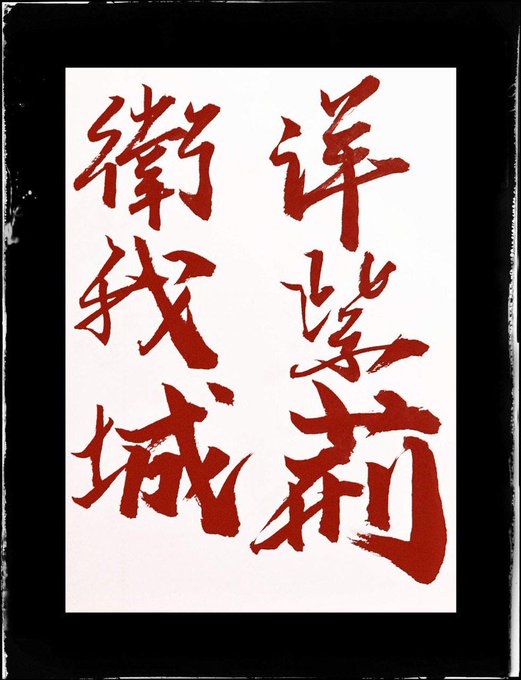 详紫荆
衛我城